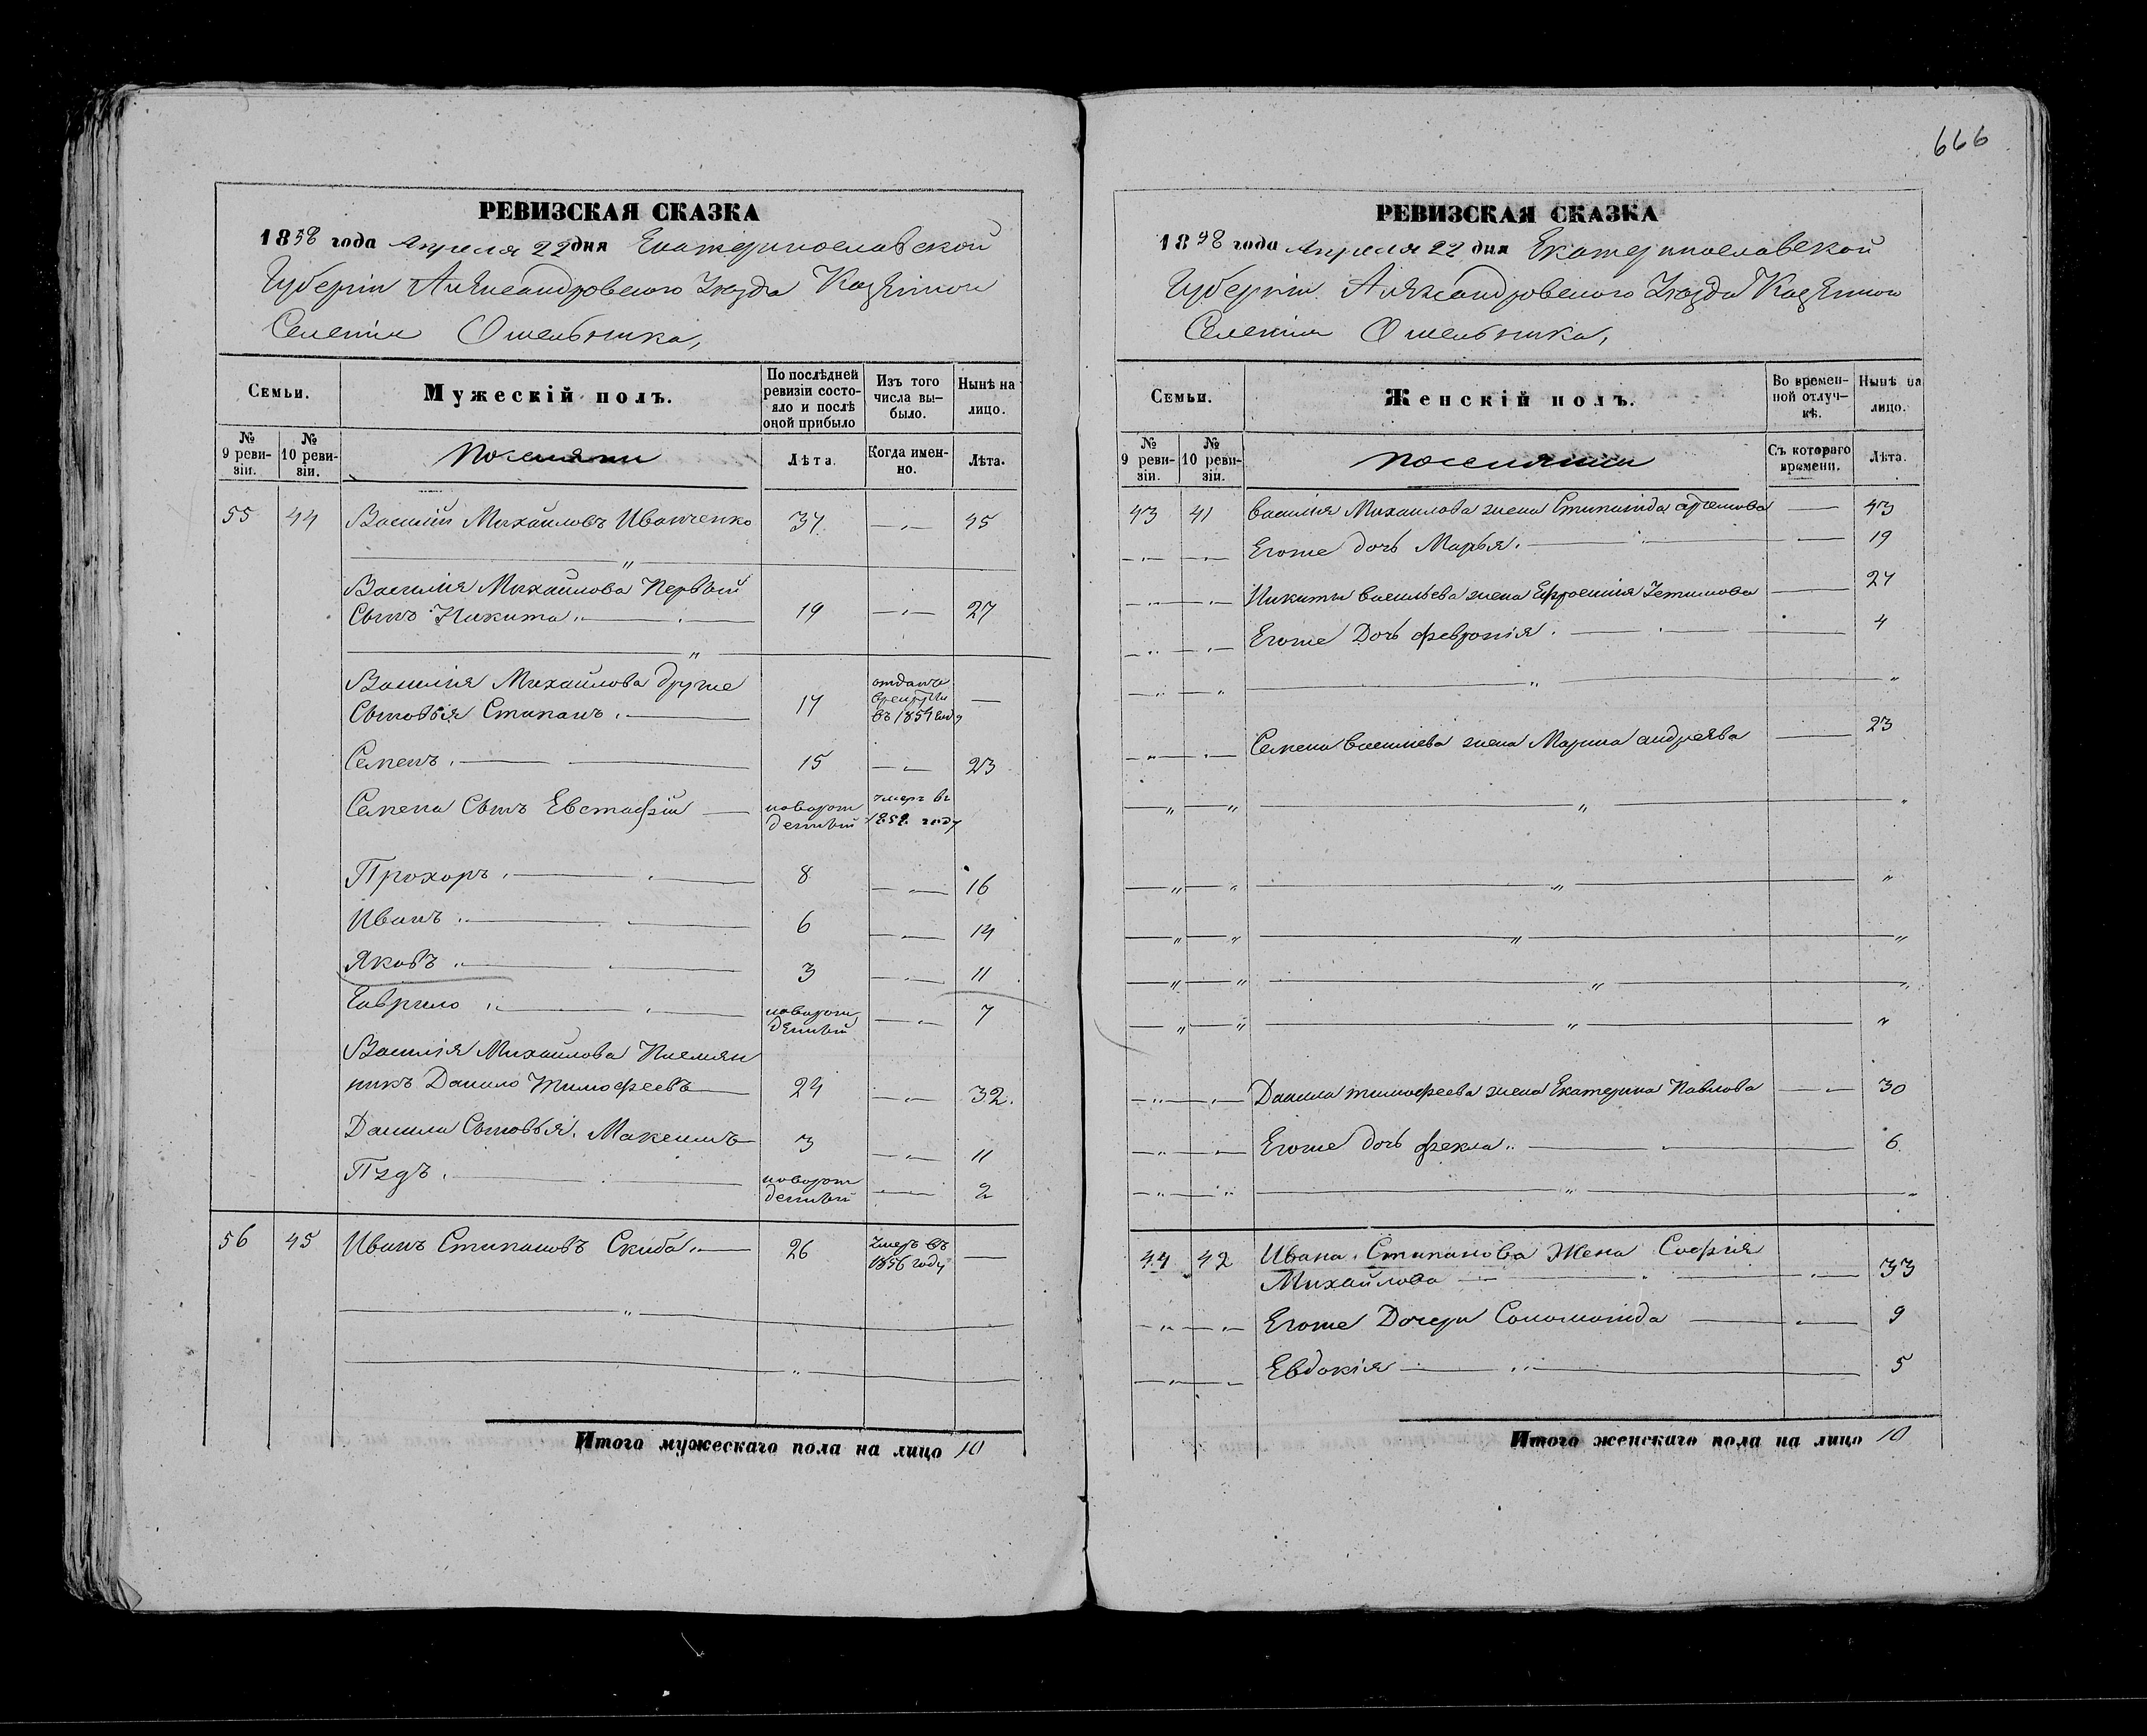 666
РЕВИЗСКАЯ СКАЗКА
1858 года Апреля 22 дня Екатеринославской
Губернiи Александровского Уезда Казенного
Селенiя Омельника,
Семьи.
Мужескiй полъ.
По послѣдней ревизiи состо-
яло и послѣ
оной прибыло
Изъ того
числа вы-
было.
Нынѣ на
лицо.
№
9 реви-
зiи.
№
10 реви-
зiи.
Поселяни
Лѣта.
Когда имен-
но.
Лѣта.
55 44 Василiй Михайловъ Иванченко 37 — 45
Василiя Михайлова Первый
Сынъ Никита 19 — 27
Василiя Михайлова другие
Сыновья Стипанъ 17 отданъ
в рекруты
въ 1854 году —
Семенъ 15 — 23
Семена Сынъ Евстафiй новорож
денный умеръ въ
1852 году
Прохоръ 8 — 16
Иванъ 6 — 14
Яковъ 3 — 11
Гаврило новорож
денный — 7
Василiя Михайлова Племян
никъ Данило Тимофеевъ 24 — 32.
Данила Сыновья Максимъ 3 — 11
Пудъ новорож
денный — 2
56 45 Иванъ Стипановъ Скиба 26 Умеръ въ
1856 году —
Итого мужескаго пола на лицо 10
РЕВИЗСКАЯ СКАЗКА
1858 года Апреля 22 дня Екатеринославской
Губернiи Александровского Уезда Казенного
Селенiя Омельника,
Семьи.
Женскiй полъ.
Во времен-
ной отлуч-
кѣ.
Нынѣ на
лицо.
№
9 реви-
зiи.
№
10 реви-
зiи.
Поселянки
Съ котораго
времени.
Лѣта.
43 41 Василiя Михаилова жена Стипанида Артемова — 43
Егоже дочь Марья 19
Никиты Васильева жена Ефросинiя Устимова — 27
Егоже Дочь Февронiя 4
Семена Василiева жена Марина андреева — 23
Данила тимофеева жена Екатерина Павлова — 30
Егоже дочь Фекла 6
44 42 Ивана Стипанова Жена Софiя
Михайлова — 33
Егоже Дочери Соломонiда — 9
Евдокiя 5
Итого женскаго пола на лицо 10